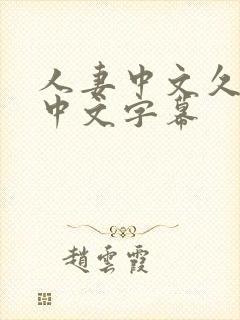 人妻中文久
中文字幕
趙雲霞